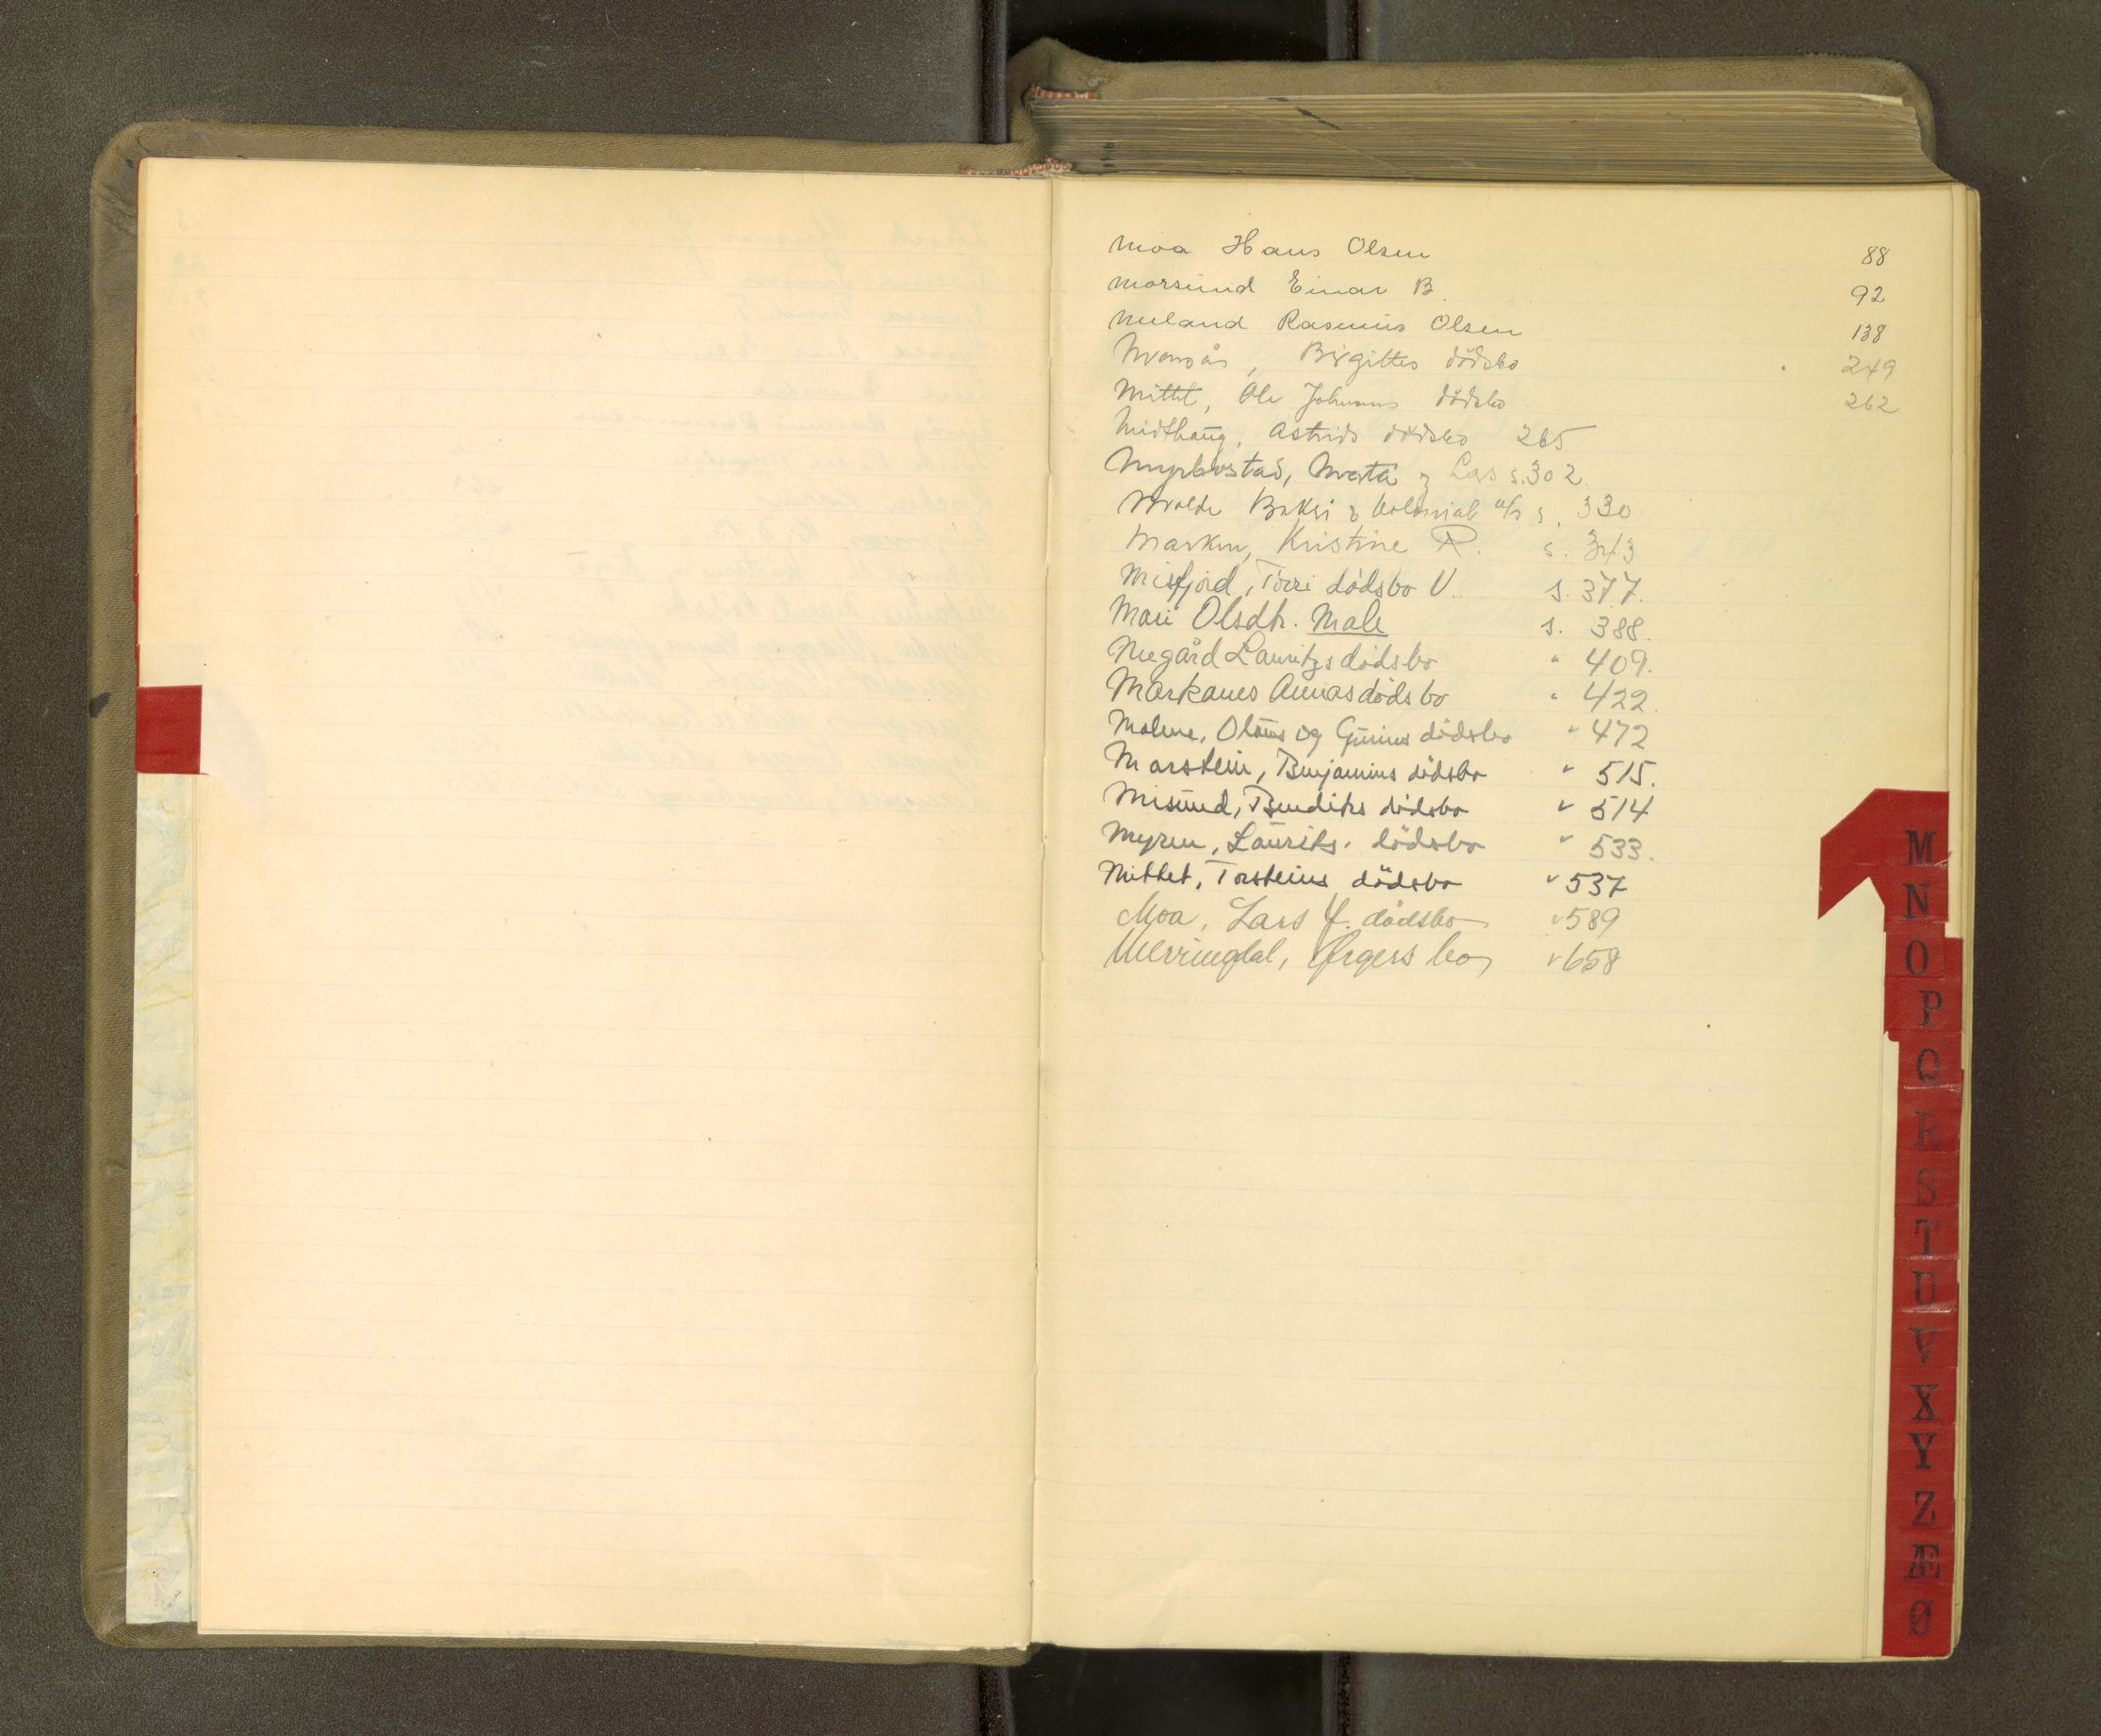 Moa Hans Olsen 88
Morsund Einar B. 92
Meland Rasmus Olsen 138
Birgittes dödsbo 249
Mittet, Ole Johnsens dödsbo 262
Midthaug, Astrids dödsbo 265
Myrbostad, Marta og Lars s. 302
Molde Bakeri & Kolonial a/s s. 330
Marken, Kristine P. s. 343
Misfjord, Torri dödsbo V. s. 377.
Mari Olsdtr. Male s. 388.
Megård Lauritzs dödsbo " 409.
Markanes Annas dödsbo " 422.
Malme, Olaus og Gurius dödsbo " 472
Marstein, Benjamins dödsbo " 515.
Misund, Bendiks dödsbo " 514
Myren, Laurits. dödsbo " 533.
Mittet, Torsteins dödsbo " 537
Moa, Lars J. dödsbo " 589
Merringdal, bo " 658
M
N
O
P
Q
R
S
T
U
V
X
Y
Z
Æ
Ø